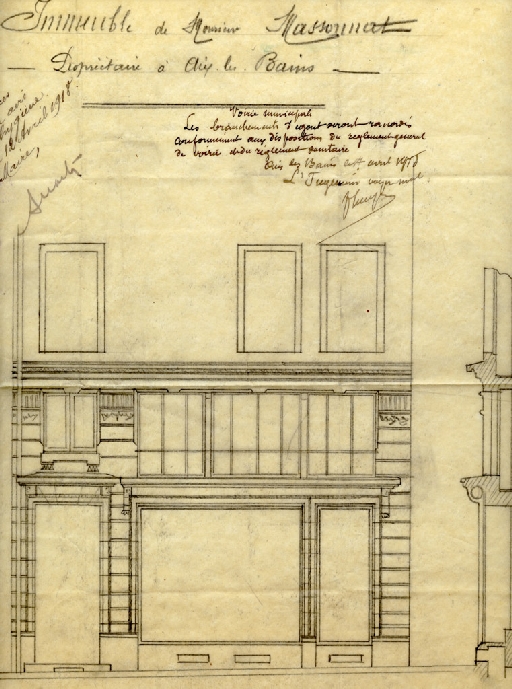 Immeuble de Monsieur Massonnat
Propriétaire à Aix-les-Bains
avis
hygiène
Avril 1918
Maire,
Voirie municipale
Les branchements d'égout seront raccordés
conformément aux dispositions du règlement général
de voirie et du règlement sanitaire
Aix les Bains avril 1918
L'Ingénieur voyer